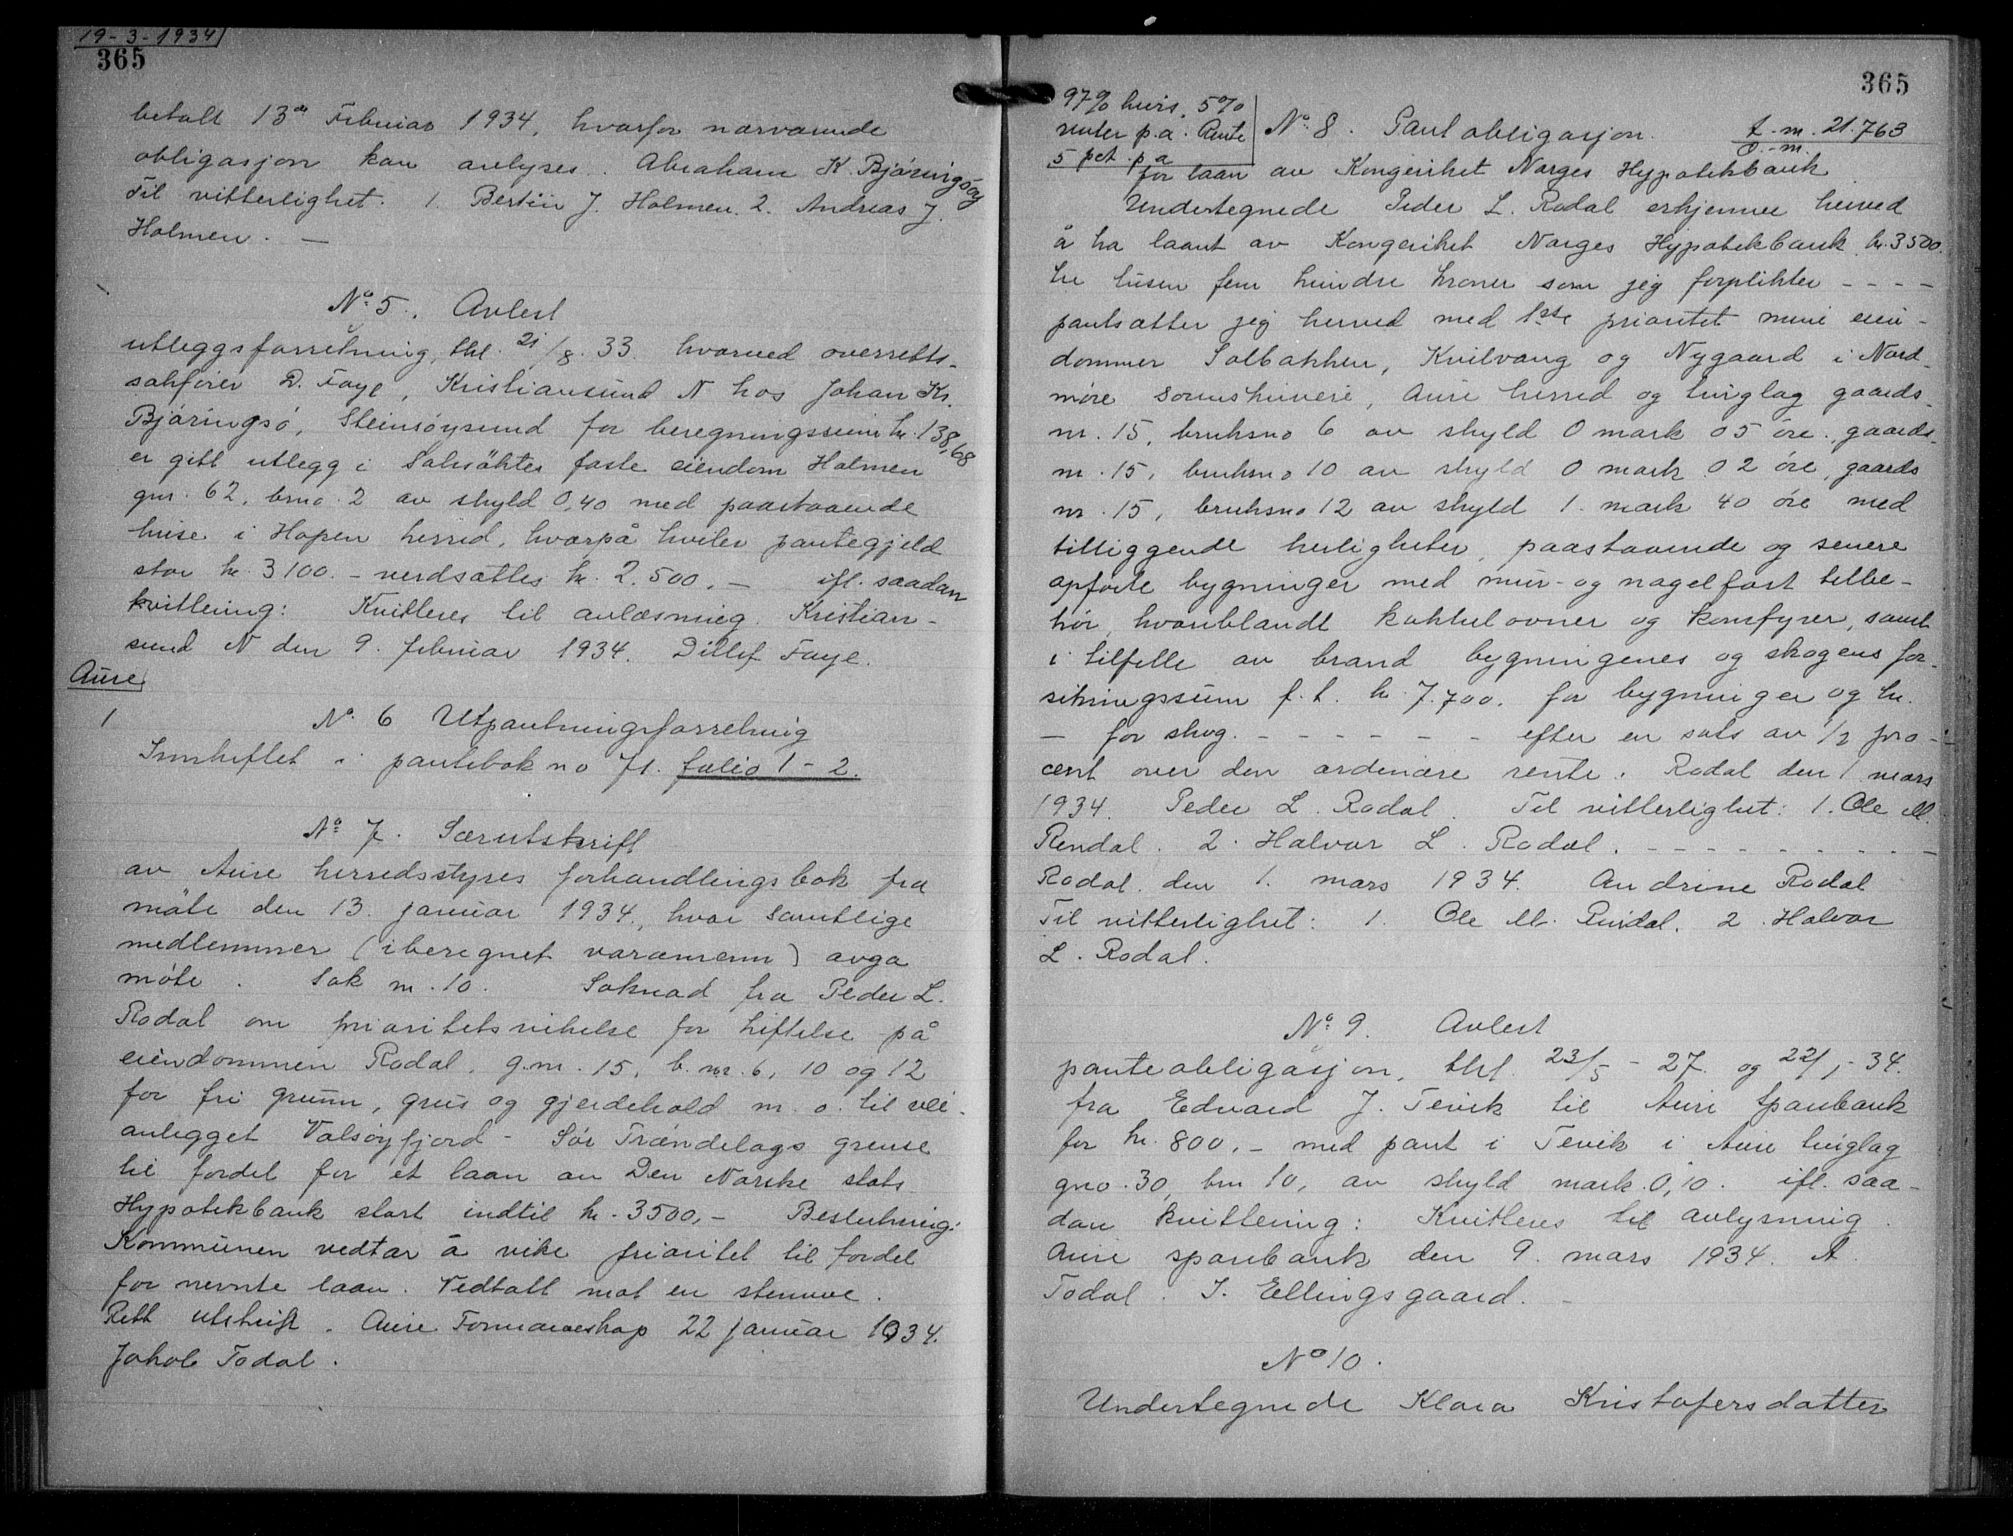 19-3-1934
365
betalt 13de Februar 1934, hvorfor nærværende
obligasjon kan avlyses. Abraham K. Bjøringsøy
Til vitterlighet: 1. Bertin J. Holmen. 2. Andreas J.
Holmen. —
No 5. Avlest
utleggsforretning, thl. 21/8. 33. hvorved overretts-
sakfører D. Faye, Kristiansund N hos Johan Kr.
Bjøringsø, Steinsøysund for beregningssum kr. 138,68
er gitt utlegg i Saksøktes faste eiendom Holmen
gnr. 62, brno. 2 av skyld 0,40 med paastaaende
huse i Hopen herred, hvorpå hviler pantegjeld
stor kr. 3100.- verdsattes kr. 2.500.- ifl. saadan
kvittering: Kvitteres til avlæsning. Kristian-
sund N den 9. februar 1934. Ditlef Faye.
Aure
1
No. 6 Utpantningsforretning
Innheftet i pantebok no 71. folio 1-2.
No 7. Særutskrift
av Aure herredsstyres forhandlingsbok fra
møte den 13. januar 1934, hvor samtlige
medlemmer (iberegnet varamenn) avga
møte. Sak nr. 10. Søknad fra Peder L.
Rodal om prioritetsvikelse for heftelse på
eiendommen Rodal, g.nr. 15, b.nr. 6, 10 og 12
for fri grunn, grus og gjerdehold m. o. til vei-
anlegget Valsøyfjord - Sør Trøndelags grense
til fordel for et laan av Den Norske stats
Hypotekbank stort indtil kr. 3500,- Beslutning:
Kommunen vedtar å vike prioritet til fordel
for nevnte laan. Vedtatt mot en stemme.
Rett utskrift. Aure Formannskap 22 januar 1934.
Jakob Todal.
365
97% kurs. 5%
renter p.a. Rente
5 pct. p a
No. 8. Pantobligasjon. L. nr. 21.763
O. - nr.
for laan av Kongeriket Norges Hypotekbank.
Undertegnede Peder L. Rodal erkjenner herved
å ha laant av Kongeriket Norges Hypotekbank kr. 3500.
tre tusen fem hundre kroner som jeg forplikter - - - -
pantsætter jeg herved med 1ste prioritet mine eien-
dommer Solbakken, Kvilvang og Nygaard i Nord-
møre sorenskriveri, Aure herred og tinglag gaards-
nr. 15, bruksno 6 av skyld 0 mark 05 øre, gaards-
nr. 15, bruksno 10 av skyld 0 mark 02 øre, gaards
nr. 15, bruksno 12 av skyld 1. mark 40 øre med
tilliggende herligheter, paastaaende og senere
opførte bygninger med mur- og nagelfast tilbe-
hør, hvoriblandt kakkelovner og komfyrer, samt
i tilfelle av brand bygningenes og skogens for-
sikringssum f. t. kr. 7.700. for bygninger og kr.
— for skog. - - - - - - efter en sats av 1/2 pro-
cent over den ordinære rente. Rodal den 1 mars
1934. Peder L. Rodal. Til vitterlighet: 1. Ole M.
Rendal. 2. Halvor L. Rodal. - - - - - - - - - -
Rodal. den 1. mars 1934. Andrine Rodal
Til vitterlighet: 1. Ole M. Rendal. 2. Halvor
L. Rodal.
No. 9. Avlest
panteobligasjon, thl. 23/5 - 27. og 22/1 - 34.
fra Edvard J. Tevik til Aure Sparebank
for kr. 800.- med pant i Tevik i Aure tinglag
gno. 30, bnr 10, av skyld mark. 0,10. ifl. saa-
dan kvittering: Kvitteres til avlysning.
Aure sparebank den 9. mars 1934. A.
Todal. I. Ellingsgaard. -
No 10.
Undertegnede Klara Kristofersdatter